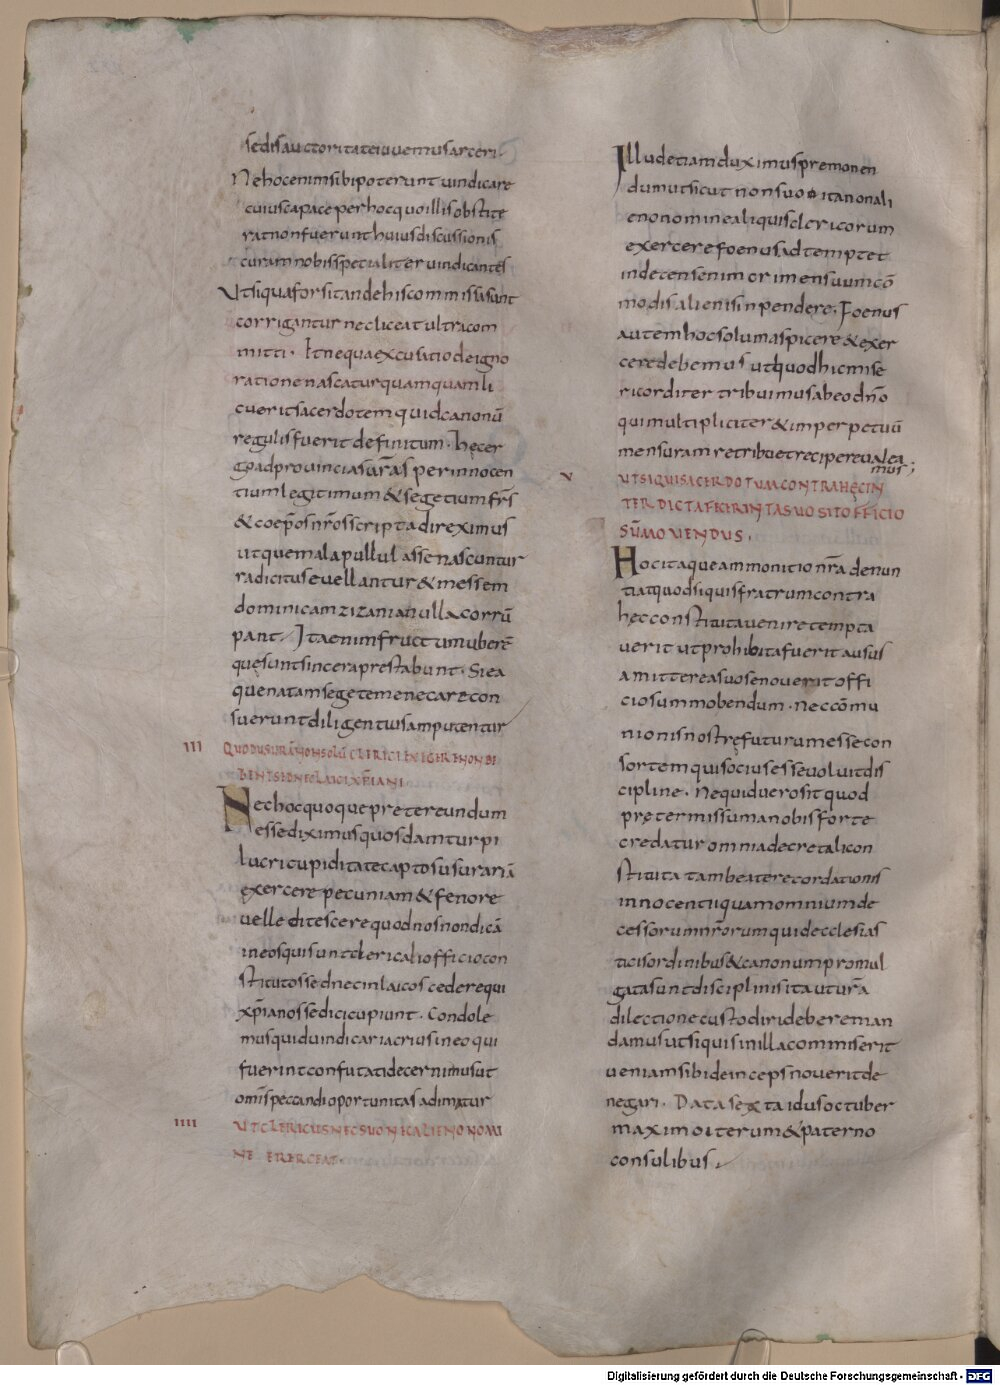 sedis auctoritate iuvemus arceri.
Ne hoc enim sibi poterunt uindicare
cuius capace per hoc quo illis obstite
rat non fuerunt huius discussionis
curam nobis specialiter uindicantes
Ut siqua forsitan de his commissa sunt
corrigantur nec liceat ultra com
mitti. Et nequa excusatio de igno
ratione nascatur quamquam li
cuerit sacerdotem quid canonū
regulis fuerit definitum. hęc er
go ad prouincias urās per innocen
tium legitimum & segetium frs̄
& coep̄os nr̄os scripta direximus
ut que mala pullulasse nascuntur
radicitus euellantur & messem
dominicam zizania nulla corrū
pant. Ita enim fructum uberē
quę sunt sincera prestabunt. Si ea
que natam segetem enecare con
suerunt diligentius amputentur
III QUOD USURĀ NON SOLŪ CLERICI EXIGERE NON DE
BENT SED NEC LAICI XP̄IANI
Nec hoc quoque pretereundum
esse diximus quosdam turpi
lucri cupiditate captos usurariā
exercere pecuniam & fenore
uelle ditescere quod nos non dicā
in eos qui sunt clericali officio con
stitutos sed nec in laicos cedere qui
xp̄ianos se dici cupiunt. Condole
mus qui d uindicari acrius in eo qui
fuerint confutati decernimus ut
omīs peccandi oportunitas adimatur
IIII UT CLERICUS NEC SUO NEC ALIENO NOMI
NE EXERCEAT.
Illud etiam duximus premonen
dum ut sicut non suo ita nonali
eno nomine aliquis clericorum
exercere foenus adtemptet
indecens enim crimen suum cō
modis alienis inpendere. Foenus
autem hoc solum aspicere & exer
cere debemus ut quod hic mise
ricorditer tribuimus ab eo dn̄o
qui multipliciter & imperpetuū
mensuram retribuet recipere ualea
mus;
V UT SI QUI SACERDOTUM CONTRA HĘC IN
TERDICTA FECERINT A SUO SIT OFFICIO
SŪMOUENDUS.
Hoc itaque ammonitio nrā denun
tiat quod siquis fratrum contra
hęc constituta uenire tempta
uerit ut prohibita fuerit ausus
amittere a suo se nouerit offi
cio summobendum. nec cōmu
nionis nostrę futurum esse con
sortem qui socius esse uoluit dis
cipline. Ne quid uero sit quod
pretermissum a nobis forte
credatur omnia decretali con
stituta tam beate recordationis
innocenti quam omnium de
cessorum nr̄orum qui de ecclesias
ticis ordinibus & canonum promul
gata sunt disciplinis ita ut urā
dilectione custodiri debere man
damus ut siquis in illa commiserit
ueniam sibi deinceps nouerit de
negari. Data sexta idus octuber
maximo iterum & paterno
consulibus.
Digitalisierung gefördert durch die Deutsche Forschungsgemeinschaft - DFG